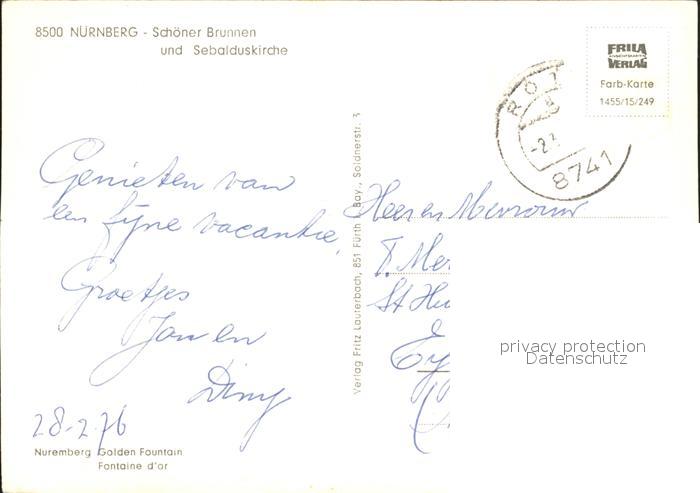 8500 NÜRNBERG - Schöner Brunnen
und Sebalduskirche
FRILA
VERLAG
Farb-Karte
1455/15/249
8741
Genieten van
een fijne vacantie,
Groetjes
Jan en
Diny
28-2-76
Heer en Mevrouw
St Hu
Verlag Fritz Lauterbach, 851 Fürth / Bay., Soldnerstr. 3
privacy protection
Datenschutz
Nuremberg Golden Fountain
Fontaine d'or